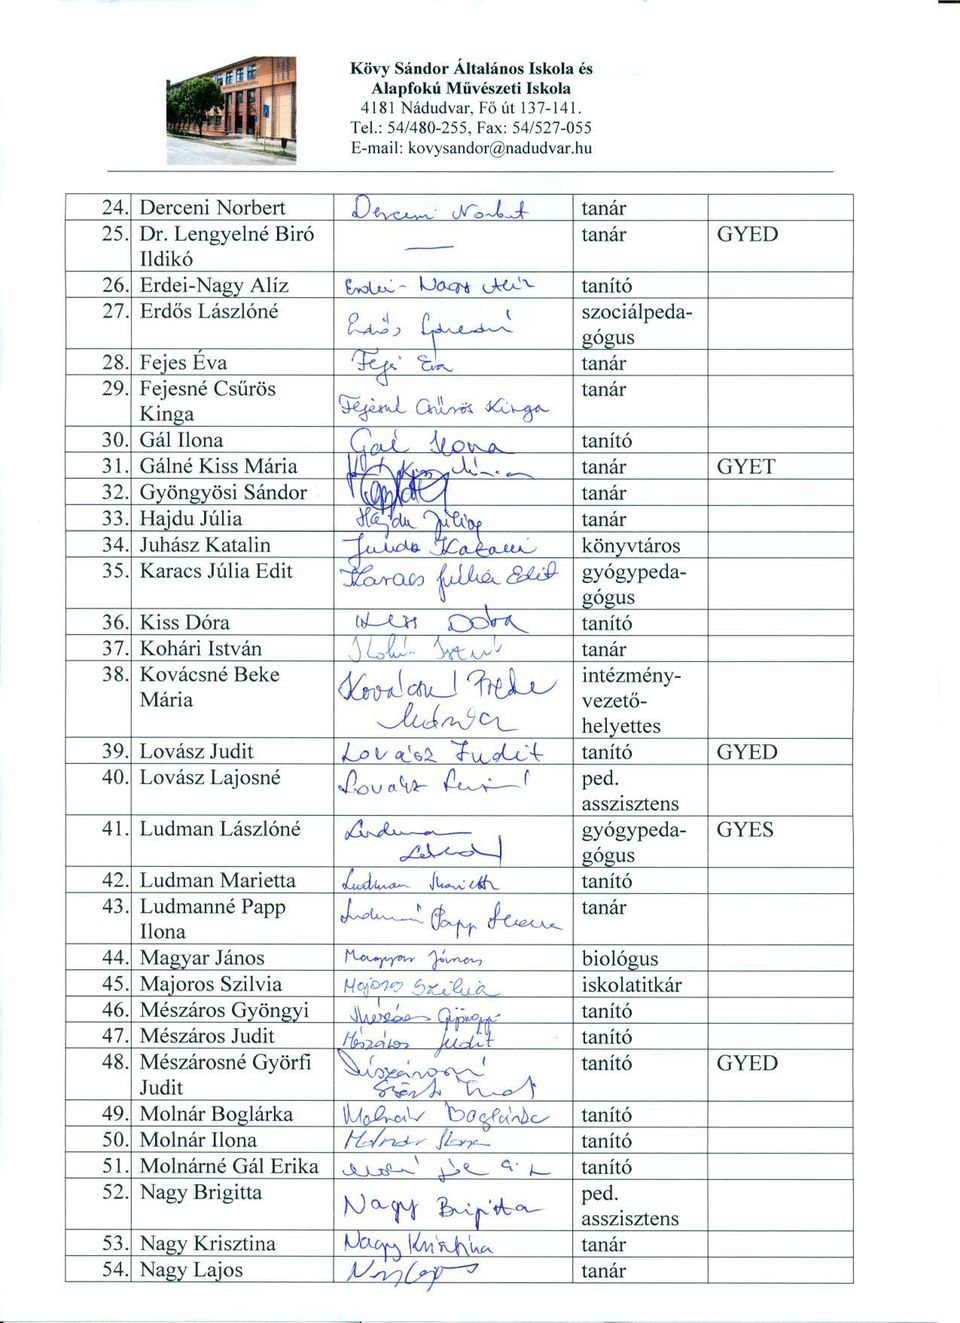 Kövy Sándor Általános Iskola és
Alapfokú Művészeti Iskola
4181 Nádudvar, Fő út 137-141.
Tel.: 54/480-255, Fax: 54/527-055
E-mail: kovysandor@nadudvar.hu
24. Derceni Norbert Derceni Norbert tanár
25. Dr. Lengyelné Biró — tanár GYED
Ildikó
26. Erdei-Nagy Alíz Erdei-Nagy Alíz tanító
27. Erdős Lászlóné Erdős Lászlóné szociálpeda-
gógus
28. Fejes Éva Fejes Éva tanár
29. Fejesné Csűrös tanár
Kinga Fejesné Csűrös Kinga
30. Gál Ilona Gál Ilona tanító
31. Gálné Kiss Mária Kiss Mária tanár GYET
32. Gyöngyösi Sándor tanár
33. Hajdu Júlia Hajdu Júlia tanár
34. Juhász Katalin Juhász Katalin könyvtáros
35. Karacs Júlia Edit Karacs Júlia Edit gyógypeda-
gógus
36. Kiss Dóra Kiss Dóra tanító
37. Kohári István Kohári István tanár
38. Kovácsné Beke Kovácsné Beke intézmény-
Mária Mária vezető-
helyettes
39. Lovász Judit Lovász Judit tanító GYED
40. Lovász Lajosné Lovász ped.
asszisztens
41. Ludman Lászlóné Ludman gyógypeda- GYES
gógus
42. Ludman Marietta Ludman Marietta tanító
43. Ludmanné Papp Ludmanné Papp Ilona tanár
Ilona
44. Magyar János Magyar János biológus
45. Majoros Szilvia Majoros Szilvia iskolatitkár
46. Mészáros Gyöngyi Mészáros Gyöngyi tanító
47. Mészáros Judit Mészáros Judit tanító
48. Mészárosné Györfi Mészárosné tanító GYED
Judit
49. Molnár Boglárka Molnár Boglárka tanító
50. Molnár Ilona Molnár Ilona tanító
51. Molnárné Gál Erika tanító
52. Nagy Brigitta Nagy Brigitta ped.
asszisztens
53. Nagy Krisztina Nagy Krisztina tanár
54. Nagy Lajos Nagy Lajos tanár